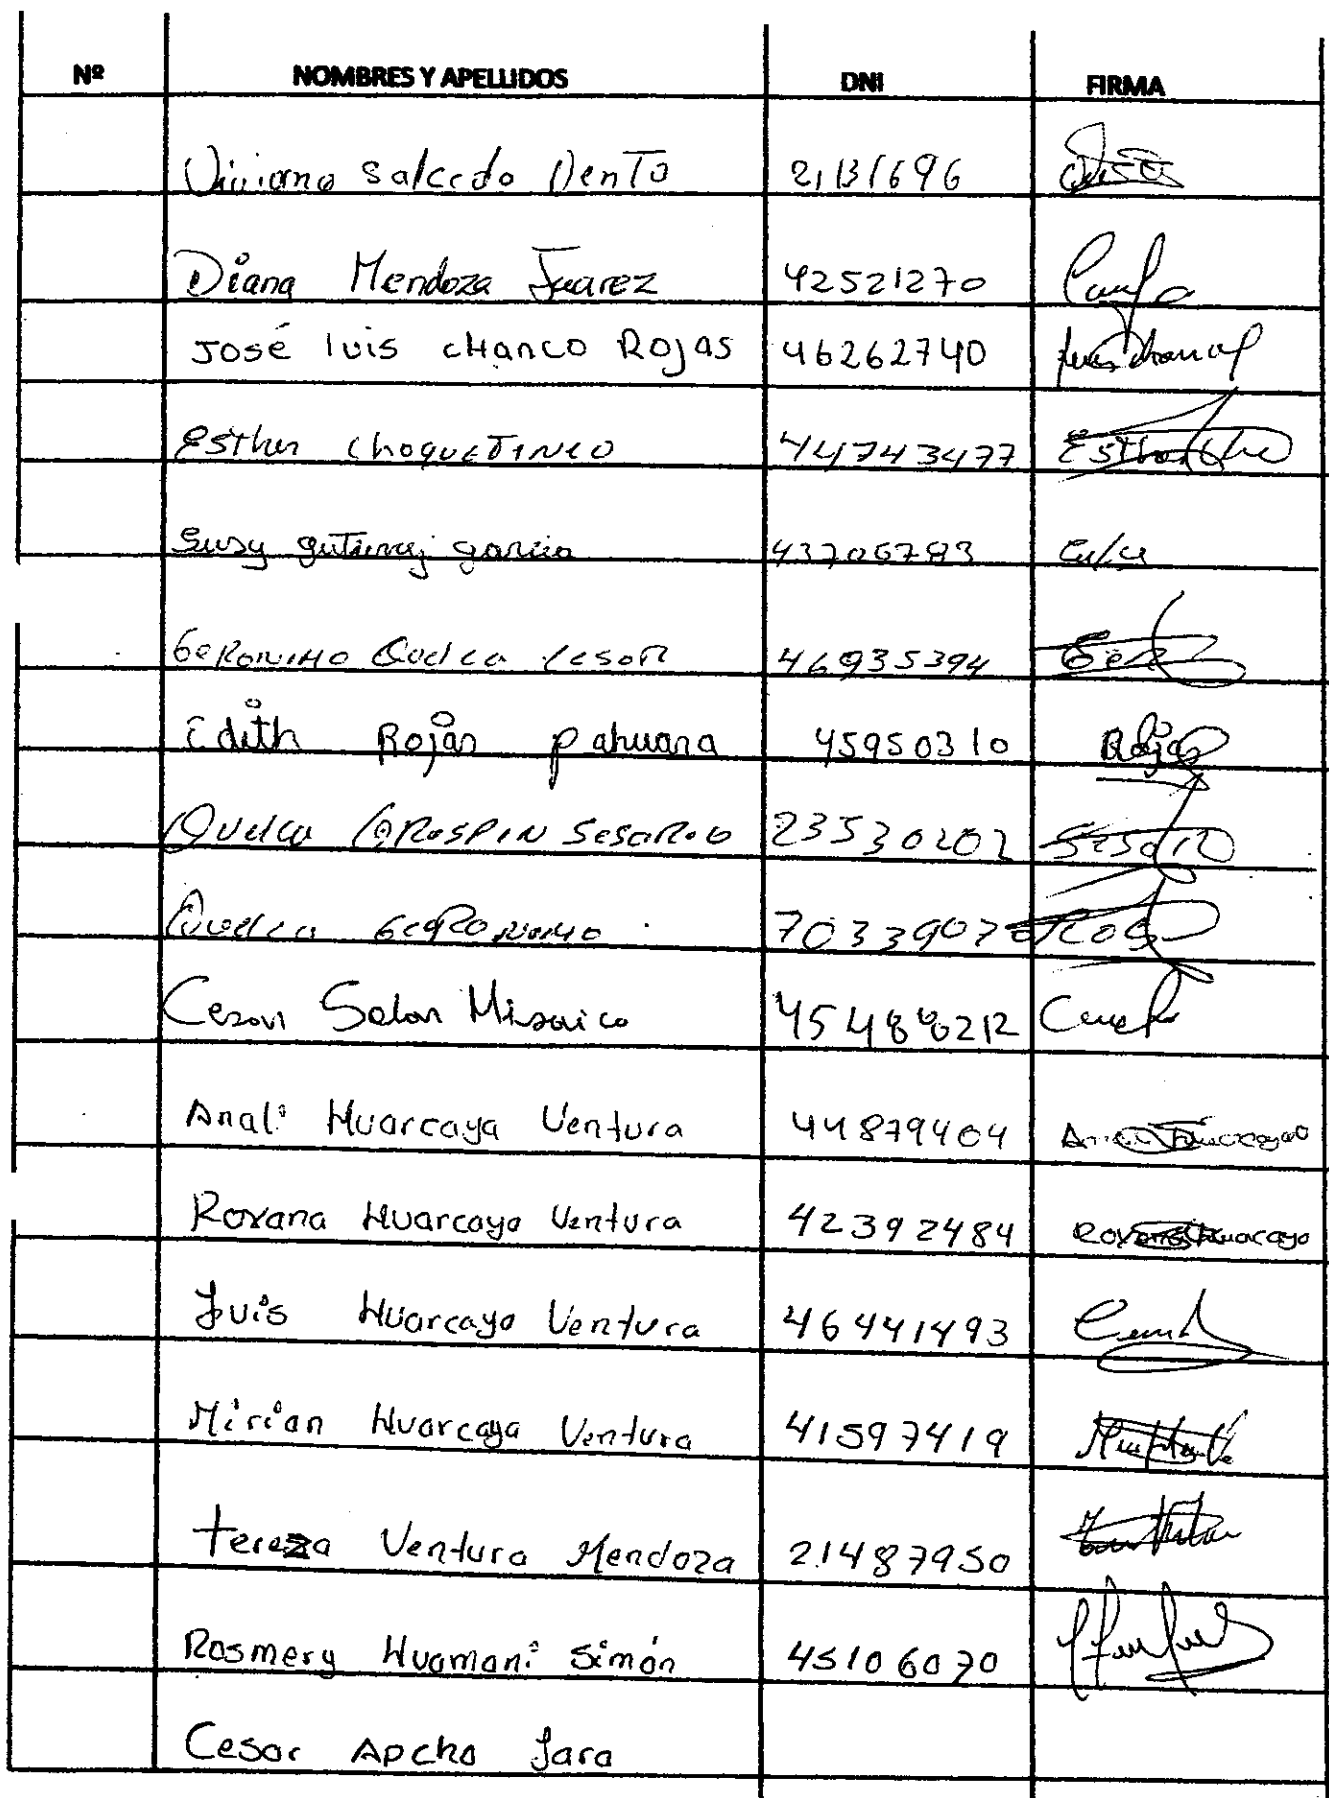 Nº NOMBRES Y APELLIDOS DNI FIRMA
Viviana Salcedo Vento 21131696
Diana Mendoza Juarez 42521270
José luis cHanco Rojas 46262740
Esther choque Tineo 44743477
Susy gutierrez garcia 43706783
GeRONIMO Quelca Cesar 46935394
Edith Rojas pahuana 45950310 Rojas
Quelca CRISPIN SesaRio 23530202
Quelca GeRONIMO
Cesar Salas Misaico
Anali Huarcaya Ventura 44879404
Roxana Huarcaya Ventura 42392484 Roxana Huarcaya
Luis Huarcaya Ventura 46441493
Mirian Huarcaya Ventura 41597419
tereza Ventura Mendoza 21487950
Rosmery Huamani Simón 45106070
Cesar Apcho Jara